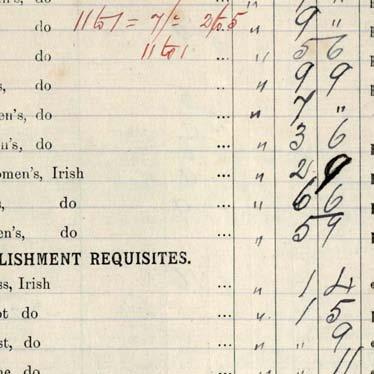 do 11 to 1 = 7/= 2/6.5 ... " 9 "
do 11 to 1 ... " 5 6
s, do ... " 9 9
en's, do ... " 7 "
n's, do ... " 3 6
omen's, Irish ... " 2 9
s, do ... " 6 6
en's, do ... " 5 9
LISHMENT REQUISITES.
ss, Irish ... " 1 4
ot do ... " 1 5
st, do ... " " 9
ne, do ... " " 11